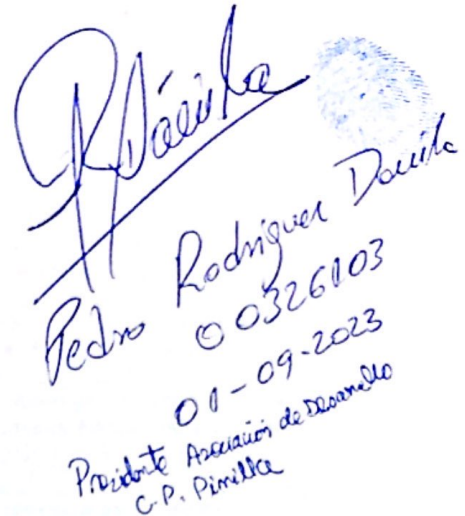 RDávila
Pedro Rodriguez Davila
00326103
01-09-2023
Presidente Asociación de Desarrollo
C.P. Pinilla